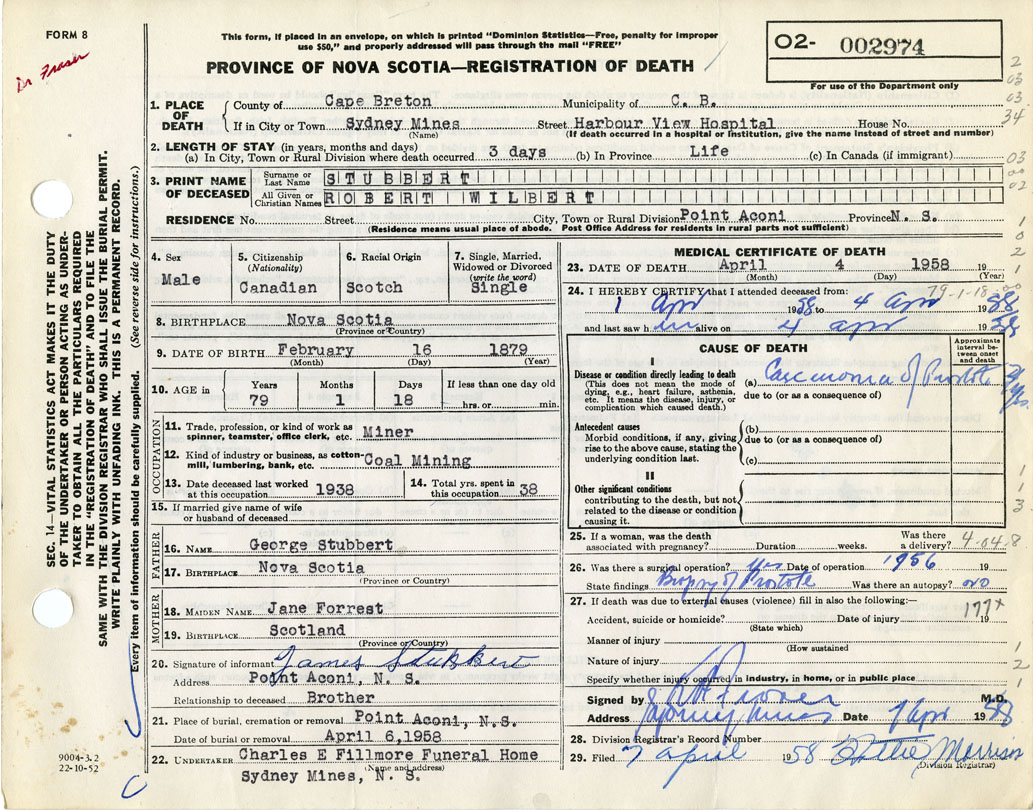 FORM 8
Dr Fraser
This form, if placed in an envelope, on which is printed "Dominion Statistics—Free, penalty for improper
use $50," and properly addressed will pass through the mail "FREE"
PROVINCE OF NOVA SCOTIA—REGISTRATION OF DEATH
O2- 002974
For use of the Department only
SEC. 14—VITAL STATISTICS ACT MAKES IT THE DUTY
OF THE UNDERTAKER OR PERSON ACTING AS UNDER-
TAKER TO OBTAIN ALL THE PARTICULARS REQUIRED
IN THE "REGISTRATION OF DEATH" AND TO FILE THE
SAME WITH THE DIVISION REGISTRAR WHO SHALL ISSUE THE BURIAL PERMIT.
WRITE PLAINLY WITH UNFADING INK. THIS IS A PERMANENT RECORD.
Every item of information should be carefully supplied. (See reverse side for instructions.)
1. PLACE OF DEATH
County of Cape Breton Municipality of C. B.
If in City or Town Sydney Mines Street Harbour View Hospital House No.
(Name) (If death occurred in a hospital or institution, give the name instead of street and number)
2. LENGTH OF STAY (in years, months and days)
(a) In City, Town or Rural Division where death occurred 3 days (b) In Province Life (c) In Canada (if immigrant)
3. PRINT NAME OF DECEASED
Surname or Last Name STUBBERT
All Given or Christian Names ROBERT WILBERT
RESIDENCE No. Street City, Town or Rural Division Point Aconi Province N. S.
(Residence means usual place of abode. Post Office Address for residents in rural parts not sufficient)
4. Sex
Male
5. Citizenship
(Nationality)
Canadian
6. Racial Origin
Scotch
7. Single, Married,
Widowed or Divorced
(write the word)
Single
8. BIRTHPLACE Nova Scotia
(Province or Country)
9. DATE OF BIRTH February 16 1879
(Month) (Day) (Year)
10. AGE in
Years Months Days If less than one day old
79 1 18 hrs. or min.
OCCUPATION
11. Trade, profession, or kind of work as
spinner, teamster, office clerk, etc. Miner
12. Kind of industry or business, as cotton-
mill, lumbering, bank, etc. Coal Mining
13. Date deceased last worked
at this occupation 1938
14. Total yrs. spent in
this occupation 38
15. If married give name of wife
or husband of deceased
FATHER
16. NAME George Stubbert
17. BIRTHPLACE Nova Scotia
(Province or Country)
MOTHER
18. MAIDEN NAME Jane Forrest
19. BIRTHPLACE Scotland
(Province or Country)
20. Signature of informant James Stubbert
Address Point Aconi, N. S.
Relationship to deceased Brother
21. Place of burial, cremation or removal Point Aconi, N.S.
Date of burial or removal April 6,1958
22. UNDERTAKER Charles E Fillmore Funeral Home
(Name and address)
Sydney Mines, N. S.
9004-3.2
22-10-52
MEDICAL CERTIFICATE OF DEATH
23. DATE OF DEATH April 4 1958 19
(Month) (Day) (Year)
79-1-18-00
24. I HEREBY CERTIFY that I attended deceased from:
1 Apr 1958 to 4 Apr 1958
and last saw him alive on 4 Apr 1958
CAUSE OF DEATH
Approximate
interval be-
tween onset
and death
I
Disease or condition directly leading to death
(This does not mean the mode of
dying, e.g., heart failure, asthenia,
etc. It means the disease, injury, or
complication which caused death.)
(a) Carcinoma of Prostate
due to (or as a consequence of)
Antecedent causes
Morbid conditions, if any, giving
rise to the above cause, stating the
underlying condition last.
(b)
due to (or as a consequence of)
(c)
II
Other significant conditions
contributing to the death, but not
related to the disease or condition
causing it.
25. If a woman, was the death
associated with pregnancy? Duration weeks. Was there
a delivery? 4-04-8
26. Was there a surgical operation? Yes Date of operation 1956 19
State findings Biopsy of Prostate Was there an autopsy? no
27. If death was due to external causes (violence) fill in also the following:—
177x
Accident, suicide or homicide? Date of injury 19
(State which)
Manner of injury
(How sustained
Nature of injury
Specify whether injury occurred in industry, in home, or in public place
Signed by M.D.
Address Sydney Mines Date 7 Apr 1958
28. Division Registrar's Record Number
29. Filed 7 April 1958 Morrison
(Division Registrar)
2
03
03
34
03
00
02
1
0
2
1
1
1
3
1
2
1